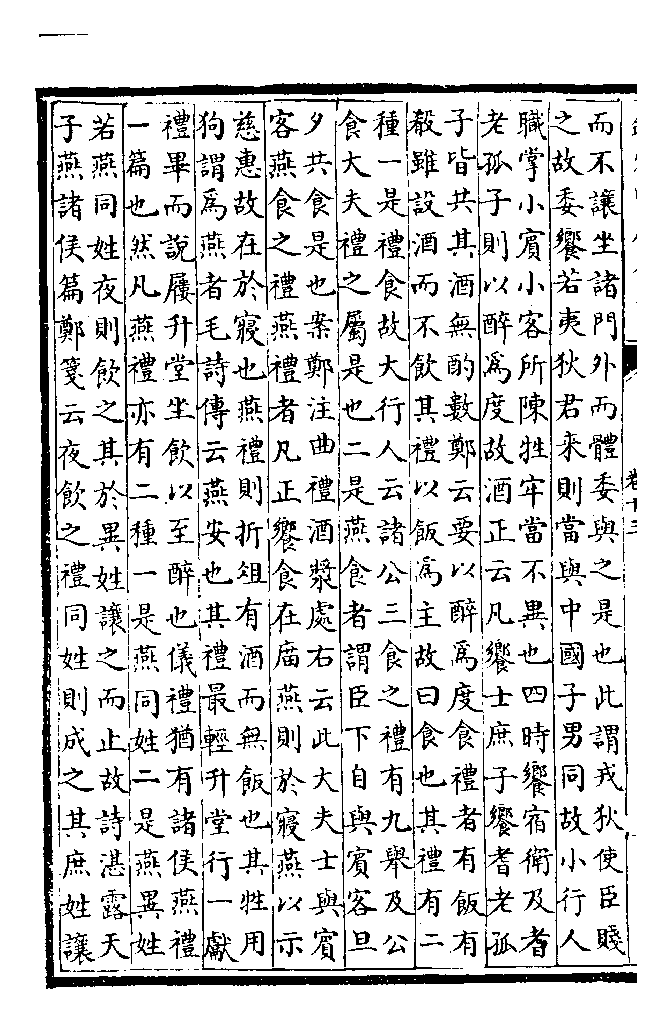 卷十三
而不讓坐諸門外而體委與之是也此謂戎狄使臣賤
之故委饗若夷狄君来則當與中國子男同故小行人
職掌小賓小客所陳牲牢當不異也四時饗宿衛及耆
老孤子則以醉爲度故酒正云凡饗士庶子饗耆老孤
子皆共其酒無酌數鄭云要以醉爲度食禮者有飯有
殽雖設酒而不飲其禮以飯爲主故曰食也其禮有二
種一是禮食故大行人云諸公三食之禮有九舉及公
食大夫禮之屬是也二是燕食者謂臣下自與賓客旦
夕共食是也案鄭注曲禮酒漿處右云此大夫士與賓
客燕食之禮燕禮者凡正饗食在庿燕則於寢燕以示
慈惠故在於寢也燕禮則折俎有酒而無飯也其牲用
狗謂爲燕者毛詩傳云燕安也其禮最輕升堂行一獻
禮畢而說屨升堂坐飲以至醉也儀禮猶有諸侯燕禮
一篇也然凡燕禮亦有二種一是燕同姓二是燕異姓
若燕同姓夜則飲之其於異姓讓之而止故詩湛露天
子燕諸侯篇鄭箋云夜飲之禮同姓則成之其庶姓讓